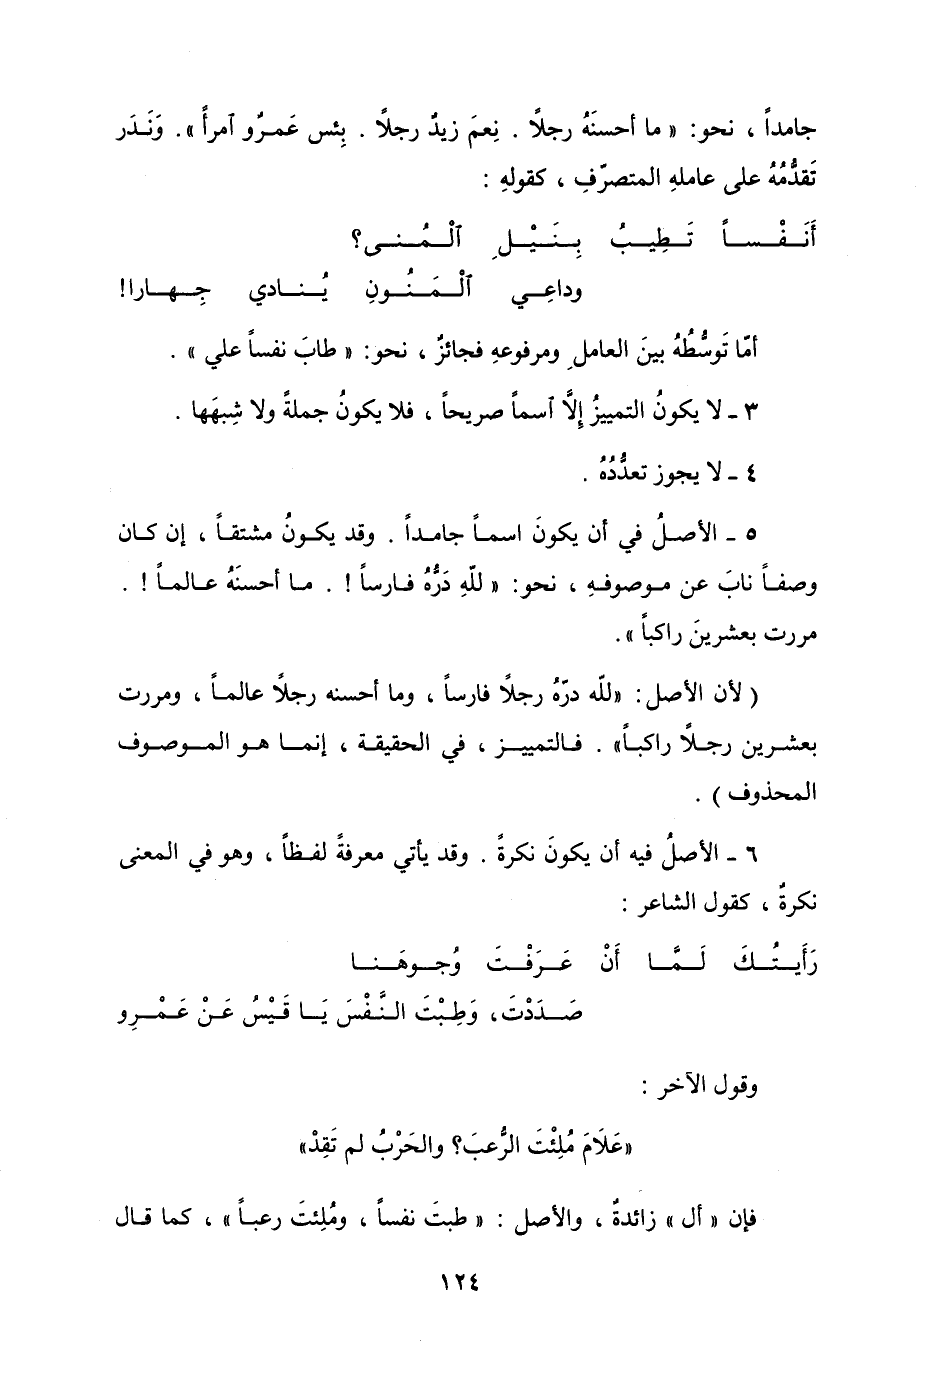 جامداً ، نحو: « ما أحسنَهُ رجلاً . نِعمَ زيدٌ رجلاً . بِئس عَمـرٌو ٱمرأً ». وَنَـدَر
تَقدُّمُهُ على عاملهِ المتصرّفِ ، كقولهِ :
أَنَـفْـســاً تَـطِيبُ بِـنَـيْـلِ ٱلْـمُـنـى؟
وداعِـي ٱلْـمَـنُـونِ يُـنَـادي جِـهـارا!
أمّا تَوسُّطُهُ بينَ العاملِ ومرفوعهِ فجائزٌ ، نحو: « طابَ نفساً علي » .
٣ ـ لا يكونُ التمييزُ إلَّا ٱسماً صريحاً ، فلا يكونُ جملةً ولا شِبهَها .
٤ ـ لا يجوز تعدُّدُهُ .
٥ ـ الأصلُ في أن يكونَ اسماً جامداً . وقد يكونُ مشتقاً ، إن كان
وصفاً نابَ عن موصوفهِ ، نحو: « للّهِ دَرُّهُ فارساً ! . ما أحسنَهُ عالماً ! .
مررت بعشرينَ راكباً ».
( لأن الأصل : «للّه درّهُ رجلاً فارساً ، وما أحسنه رجلاً عالماً ، ومررت
بعشرين رجلاً راكباً» . فالتمييز ، في الحقيقة ، إنما هو الموصوف
المحذوف ) .
٦ ـ الأصلُ فيه أن يكونَ نكرةً . وقد يأتي معرفةً لفظاً ، وهو في المعنى
نكرةٌ ، كقول الشاعر :
رَأَيـتُـكَ لَـمَّـا أَنْ عَـرَفْـتَ وُجـوهَـنـا
صَـدَدْتَ، وَطِبْتَ النَّفْسَ يَـا قَيْسُ عَـنْ عَـمْـرِو
وقول الآخر :
«عَلَامَ مُلِئْتَ الرُّعبَ؟ والحَرْبُ لم تَقِدْ»
فإن « أل » زائدةٌ ، والأصل : « طبتَ نفساً ، ومُلِئتَ رعباً » ، كما قال
١٢٤